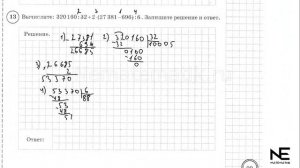 13 Вычислите: 320 160 : 32 + 2 · (27 381 – 696) : 6. Запишите решение и ответ.
Решение.
1) 27381
696
26685
2) 320160 32
32 10005
0160
160
0
3) 26685
2
53370
4) 53370 6
48 88
53
48
5
Ответ:
NE